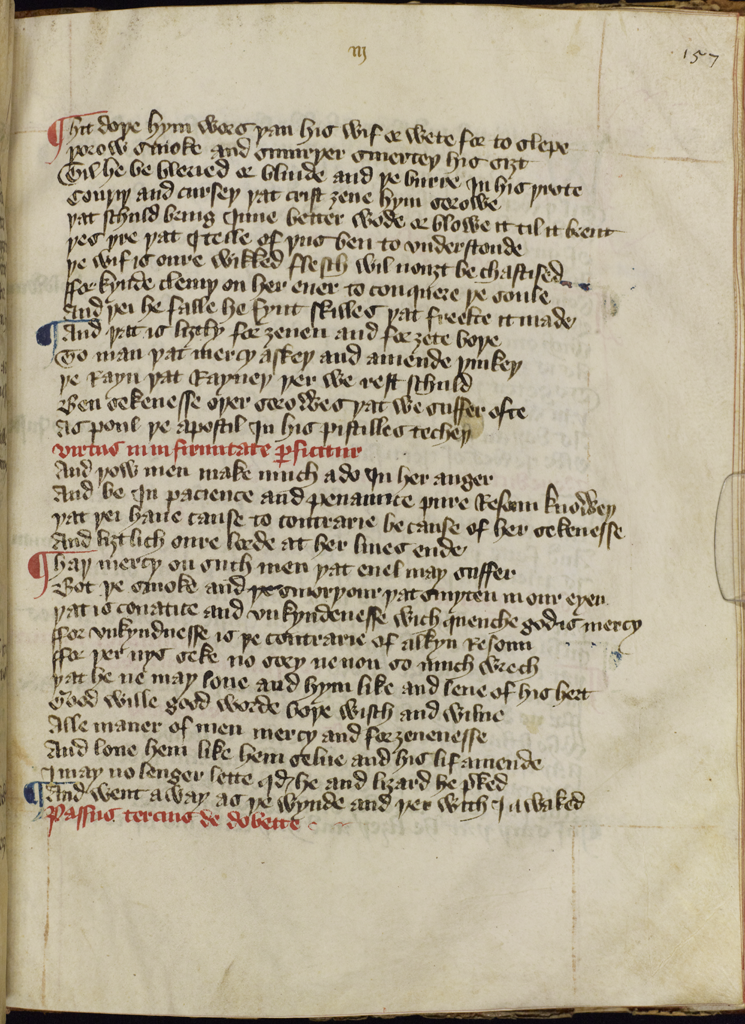 m
157
Hit doþe hym wors þan his wif or wete for to slepe
þorow smoke and smorþer smerteþ his siȝt
Til he be blered or blinde and þe burre in his þrote
Couþiþ and curseþ þat crist ȝene hym sorowe
þat schuld bring inne better wode or blowe it til it brent
þes þre þat I telle of þus ben to vnderstonde
þe wif is oure wikked flesch wil nouȝt be chastised
ffor kynde clemiþ on her euer to conquere þe soule
And þei he falle he fynt skilles þat freelte it made
And þat is liȝtly for ȝeuen and for ȝete boþe
To man þat mercy askeþ and amende þinkeþ
þe Rayn þat Rayneþ þer we rest schuld
Ben sekenesse oþer sorowes þat we suffer ofte
As poul þe apostil in his pistilles techeþ
virtus in infirmitate perficitur
And þow men make much ado in her anger
And be in pacience and penaunce pure Resoun knoweþ
þat þei haue cause to contrarie be cause of her sekenesse
And liȝtlich oure lorde at her liues ende
Haþ mercy on such men þat euel may suffer
Bot þe smoke and þe smorþour þat smyten in our eyen
þat is couatice and vnkyndenesse wich quenche godis mercy
ffor vnkyndnesse is þe contrarie of alkyn Resoun
ffor þer nys seke no sory ne non so much wrech
þat he ne may loue and hym like and lene of his hert
Good wille good worde boþe wisch and wilne
Alle maner of men mercy and forȝeuenesse
And loue hem like hem selue and his lif amende
I may no lenger lette qd he and liȝard he pked
And went away as þe wynde and þer with I awaked
Passus tercius de dobette